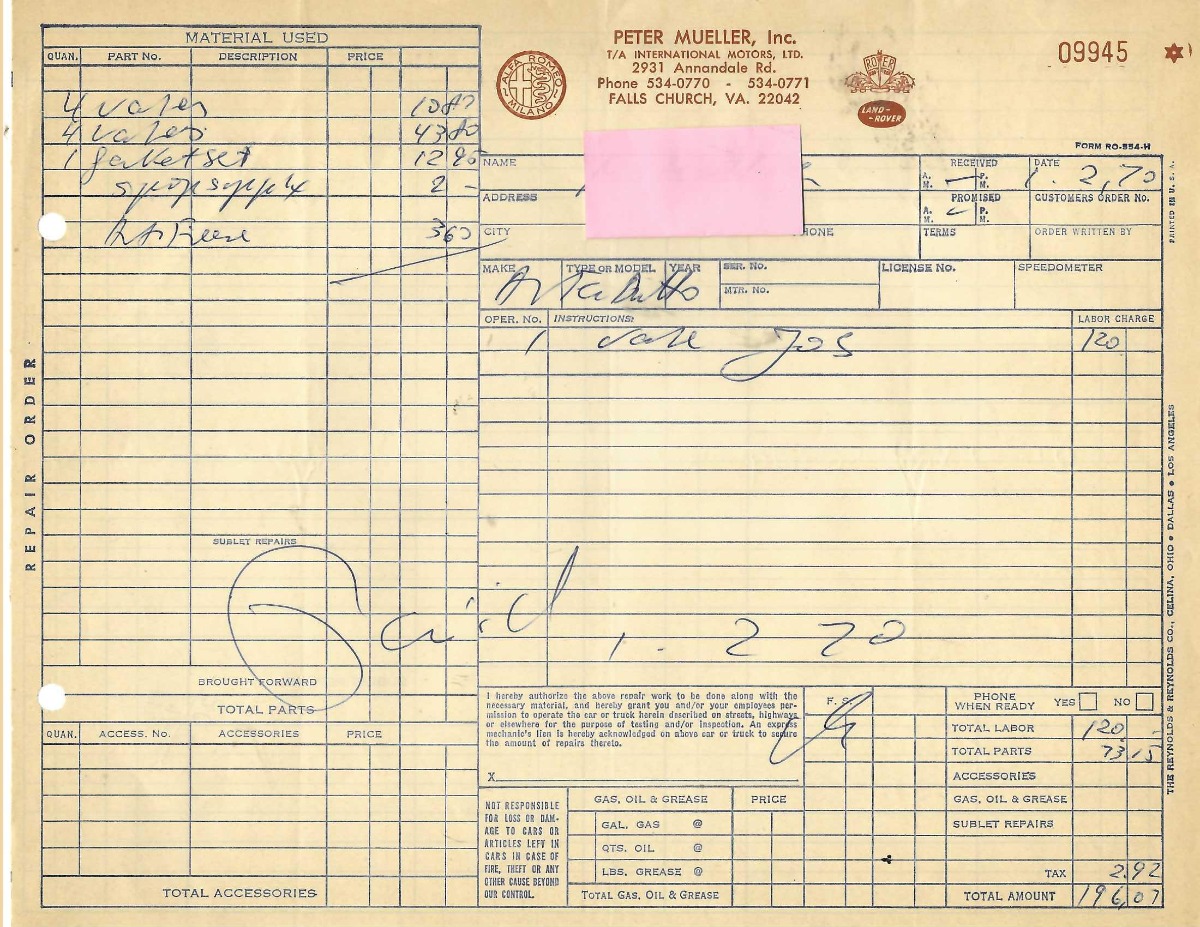 MATERIAL USED
QUAN. PART No. DESCRIPTION PRICE
4 valves 10 80
4 valves 43 80
1 gasket set 12 95
shop supply 2 -
3 60
SUBLET REPAIRS
BROUGHT FORWARD
TOTAL PARTS
QUAN. ACCESS. No. ACCESSORIES PRICE
TOTAL ACCESSORIES
REPAIR ORDER
ALFA ROMEO
MILANO
PETER MUELLER, Inc.
T/A INTERNATIONAL MOTORS, LTD.
2931 Annandale Rd.
Phone 534-0770 - 534-0771
FALLS CHURCH, VA. 22042
ROVER
LAND-
-ROVER
09945
FORM RO-554-H
NAME RECEIVED A. M. P. M. DATE 1. 2, 70
ADDRESS PROMISED A. M. P. M. CUSTOMERS ORDER No.
CITY HONE TERMS ORDER WRITTEN BY
MAKE TYPE OR MODEL YEAR SER. No. LICENSE No. SPEEDOMETER
MTR. No.
OPER. No. INSTRUCTIONS: LABOR CHARGE
1 valve Job 120
Paid 1. 2 70
I hereby authorize the above repair work to be done along with the
necessary material, and hereby grant you and/or your employees per-
mission to operate the car or truck herein described on streets, highways
or elsewhere for the purpose of testing and/or inspection. An express
mechanic's lien is hereby acknowledged on above car or truck to secure
the amount of repairs thereto.
X
F. S.
PHONE WHEN READY YES NO
TOTAL LABOR 120 -
TOTAL PARTS 73 15
ACCESSORIES
GAS, OIL & GREASE
SUBLET REPAIRS
TAX 2.92
TOTAL AMOUNT 196,07
NOT RESPONSIBLE
FOR LOSS OR DAM-
AGE TO CARS OR
ARTICLES LEFT IN
CARS IN CASE OF
FIRE, THEFT OR ANY
OTHER CAUSE BEYOND
OUR CONTROL.
GAS, OIL & GREASE PRICE
GAL. GAS @
QTS. OIL @
LBS. GREASE @
TOTAL GAS, OIL & GREASE
PRINTED IN U. S. A.
THE REYNOLDS & REYNOLDS CO., CELINA, OHIO • DALLAS • LOS ANGELES